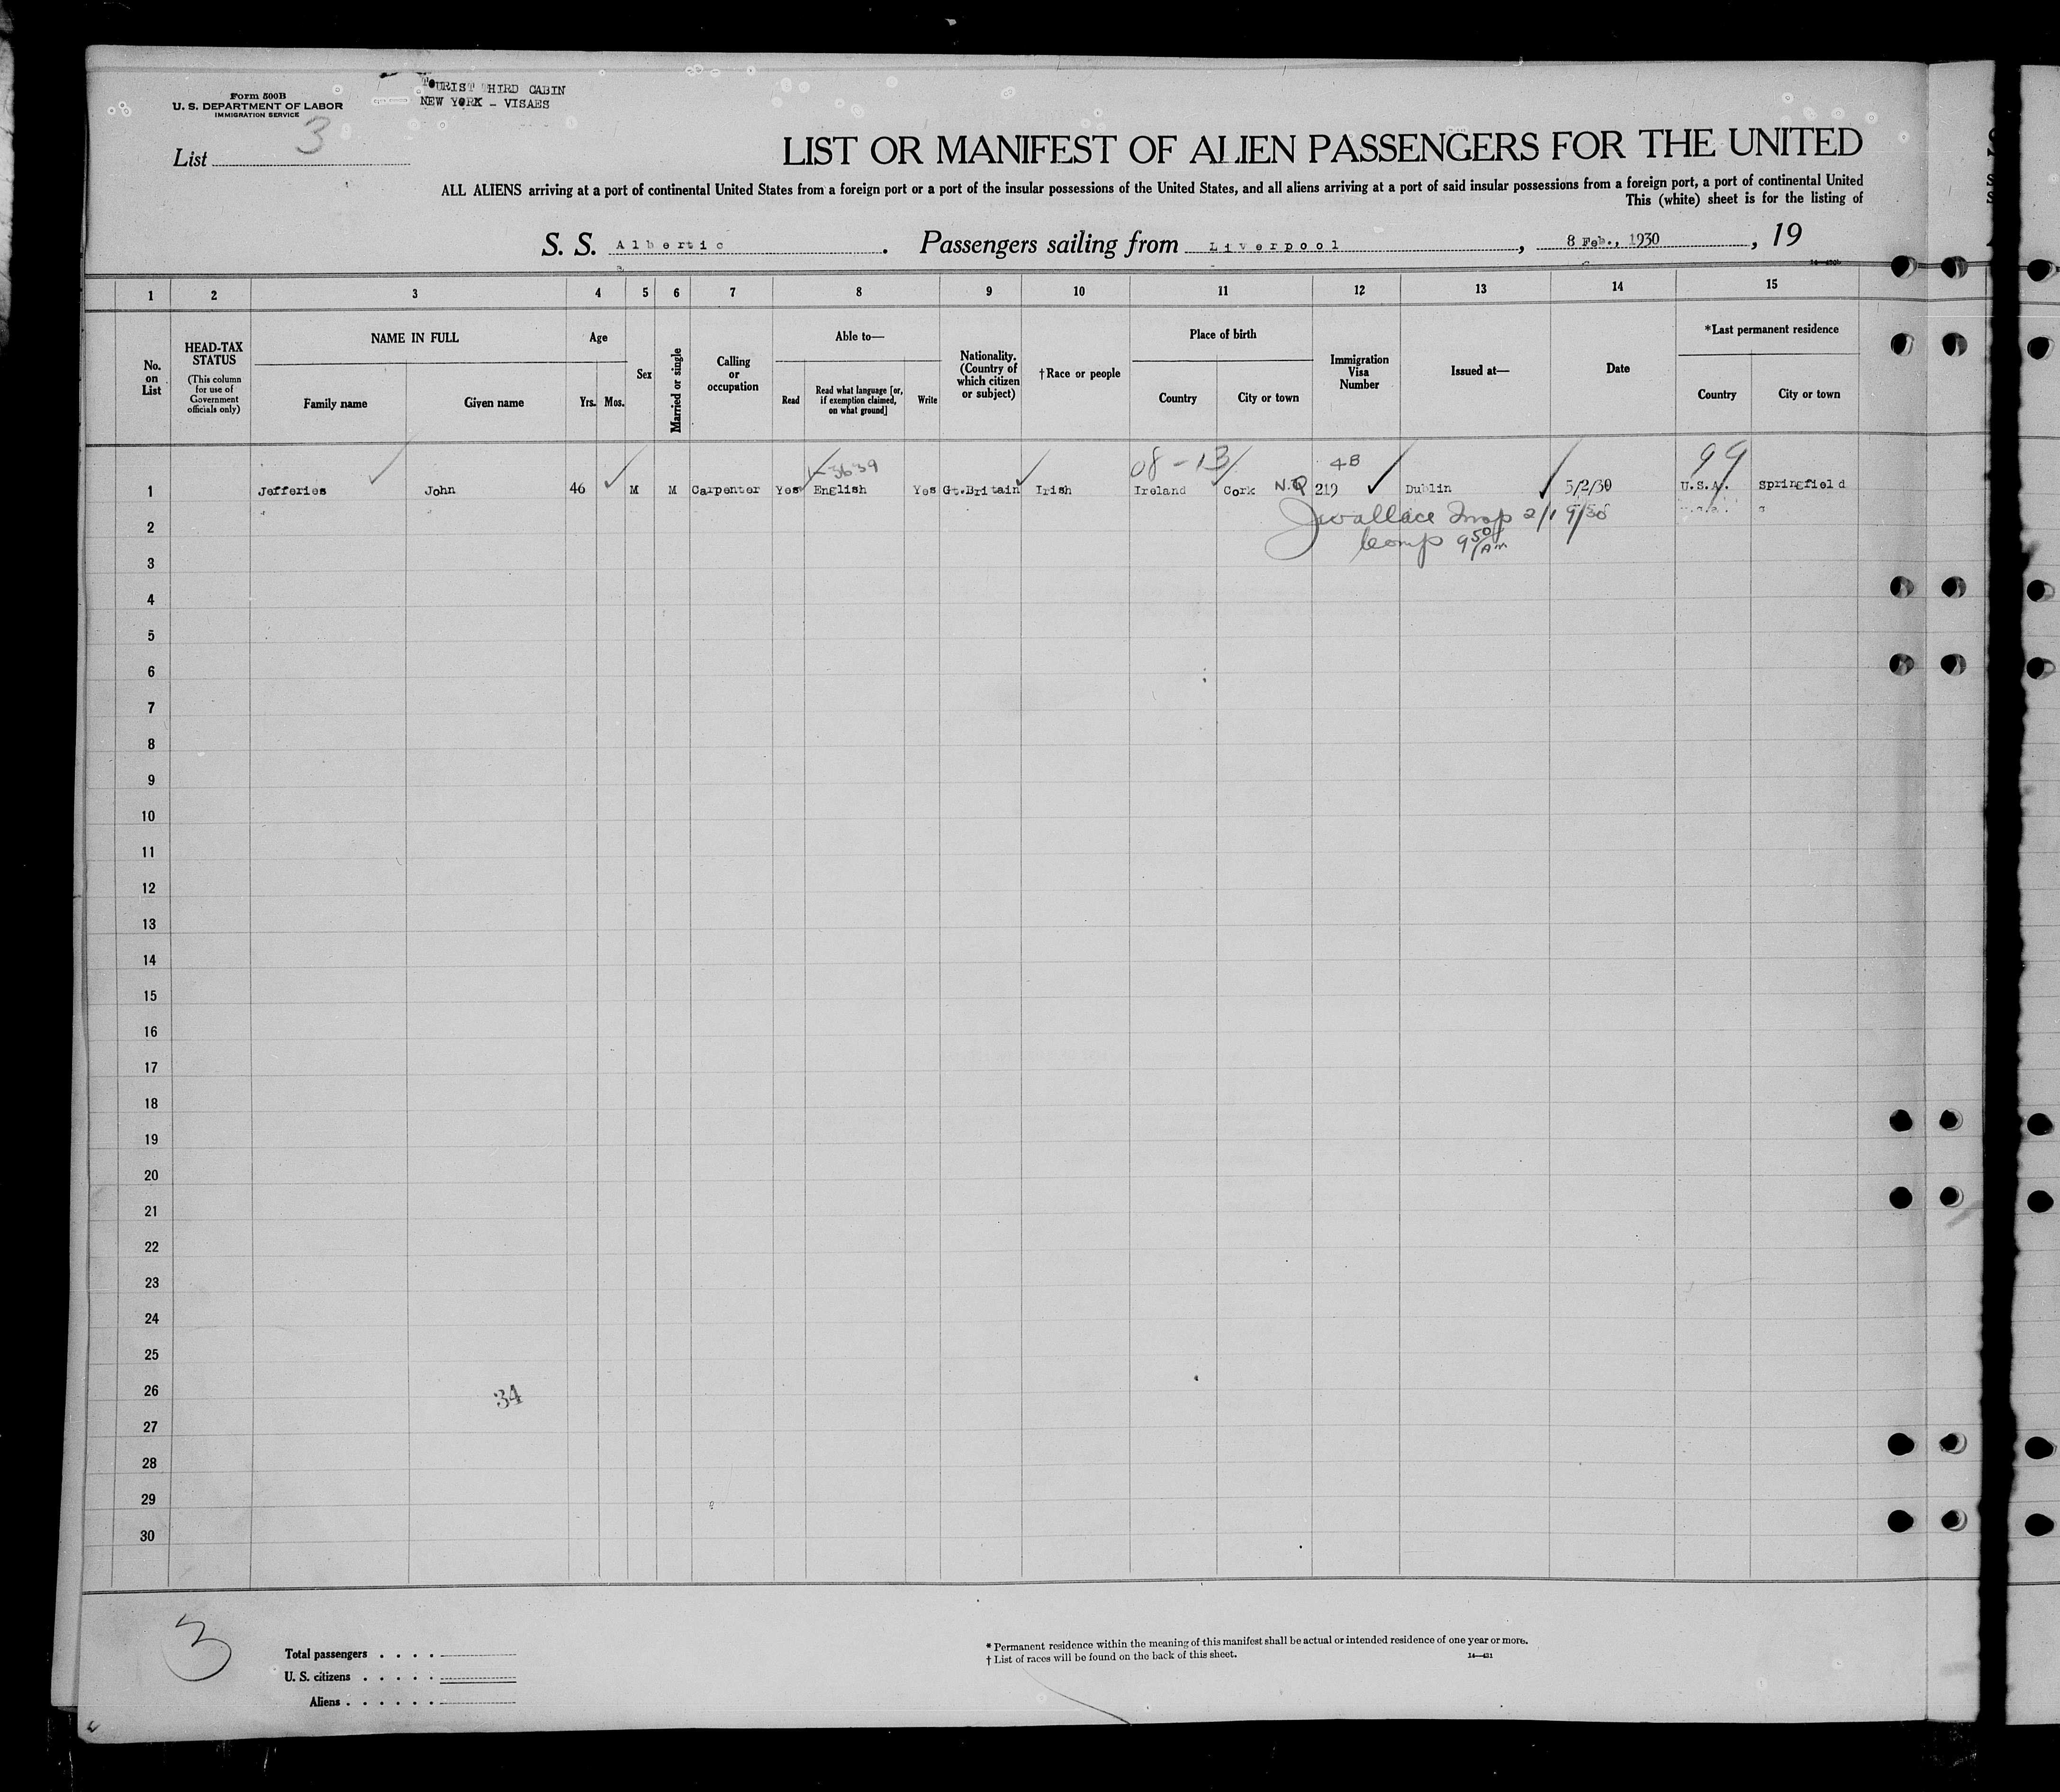 Form 500B
U. S. DEPARTMENT OF LABOR
IMMIGRATION SERVICE
TOURIST THIRD CABIN
NEW YORK - VISAES
List 3
LIST OR MANIFEST OF ALIEN PASSENGERS FOR THE UNITED
ALL ALIENS arriving at a port of continental United States from a foreign port or a port of the insular possessions of the United States, and all aliens arriving at a port of said insular possessions from a foreign port, a port of continental United
This (white) sheet is for the listing of
S. S. Albertic. Passengers sailing from Liverpool, 8 Feb., 1930, 19
1 2 3 4 5 6 7 8 9 10 11 12 13 14 15
No. on List
HEAD-TAX STATUS
(This column for use of Government officials only)
NAME IN FULL
Family name
Given name
Age
Yrs. Mos.
Sex
Married or single
Calling or occupation
Able to—
Read
Read what language [or, if exemption claimed, on what ground]
Write
Nationality. (Country of which citizen or subject)
†Race or people
Place of birth
Country
City or town
Immigration Visa Number
Issued at—
Date
*Last permanent residence
Country
City or town
3639 08-13 4B 99
1 Jefferies John 46 M M Carpenter Yes English Yes Gt.Britain Irish Ireland Cork N.Q 219 Dublin 5/2/30 U.S.A. Springfield
Jwallace Insp 2/19/30
2
Comp 9 50/AM
3
4
5
6
7
8
9
10
11
12
13
14
15
16
17
18
19
20
21
22
23
24
25
26
34
27
28
29
30
3
Total passengers . . . .
U. S. citizens . . . . .
Aliens . . . . . .
* Permanent residence within the meaning of this manifest shall be actual or intended residence of one year or more.
† List of races will be found on the back of this sheet.
14—431